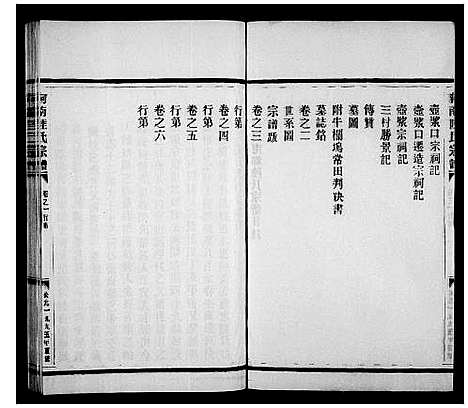 壺漿口宗祠記
壺漿口遷造宗祠記
壺漿宗祠記
三村勝景記
傳贊
墓圖
附牛欄塢常田判决書
墓誌銘
卷之二
世系圖
宗譜跋
卷之三
行第
卷之四
行第
卷之五
行第
卷之六
行第
河南陸氏宗譜
卷之一